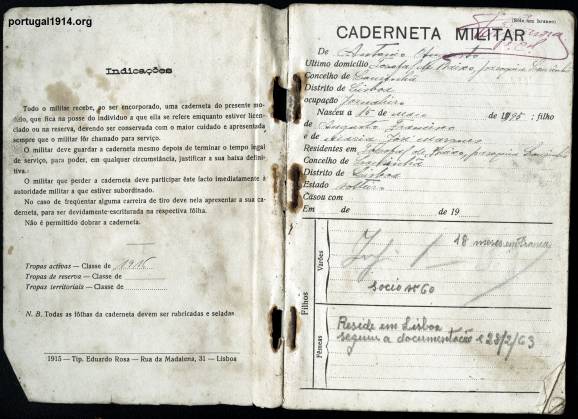 portugal1914.org
Indicações
Todo o militar recebe, ao ser incorporado, uma caderneta do presente mo-
delo, que fica na posse do indivíduo a que ela se refere enquanto estiver licen-
ciado ou na reserva, devendo ser conservada com o maior cuidado e apresentada
sempre que o militar fôr chamado para serviço.
O militar deve guardar a caderneta mesmo depois de terminar o tempo legal
de serviço, para poder, em qualquer circunstância, justificar a sua baixa defini-
tiva.
O militar que perder a caderneta deve participar êste facto imediatamente à
autoridade militar a que estiver subordinado.
No caso de freqüentar alguma carreira de tiro deve nela apresentar a sua ca-
derneta, para ser devidamente escriturada na respectiva fôlha.
Não é permitido dobrar a caderneta.
Tropas activas — Classe de 1916
Tropas de reserva — Classe de
Tropas territoriais — Classe de
N. B. Todas as fôlhas da caderneta devem ser rubricadas e seladas
1915 — Tip. Eduardo Rosa — Rua da Madalena, 31 — Lisboa
(Sêlo em branco)
CADERNETA MILITAR
De António Augusto
Último domicílio
Concelho de Lourinhã
Distrito de Lisboa
ocupação
Nasceu a 15 de Maio de 1895: filho
de Augusto Francisco
e de
Residentes em
Concelho de Lourinhã
Distrito de Lisboa
Estado solteiro
Casou com
Em de de 19
Filhos
Varões
18 meses em França
socio nº 60
Fêmeas
Reside em Lisboa
segundo a documentação 28/2/63